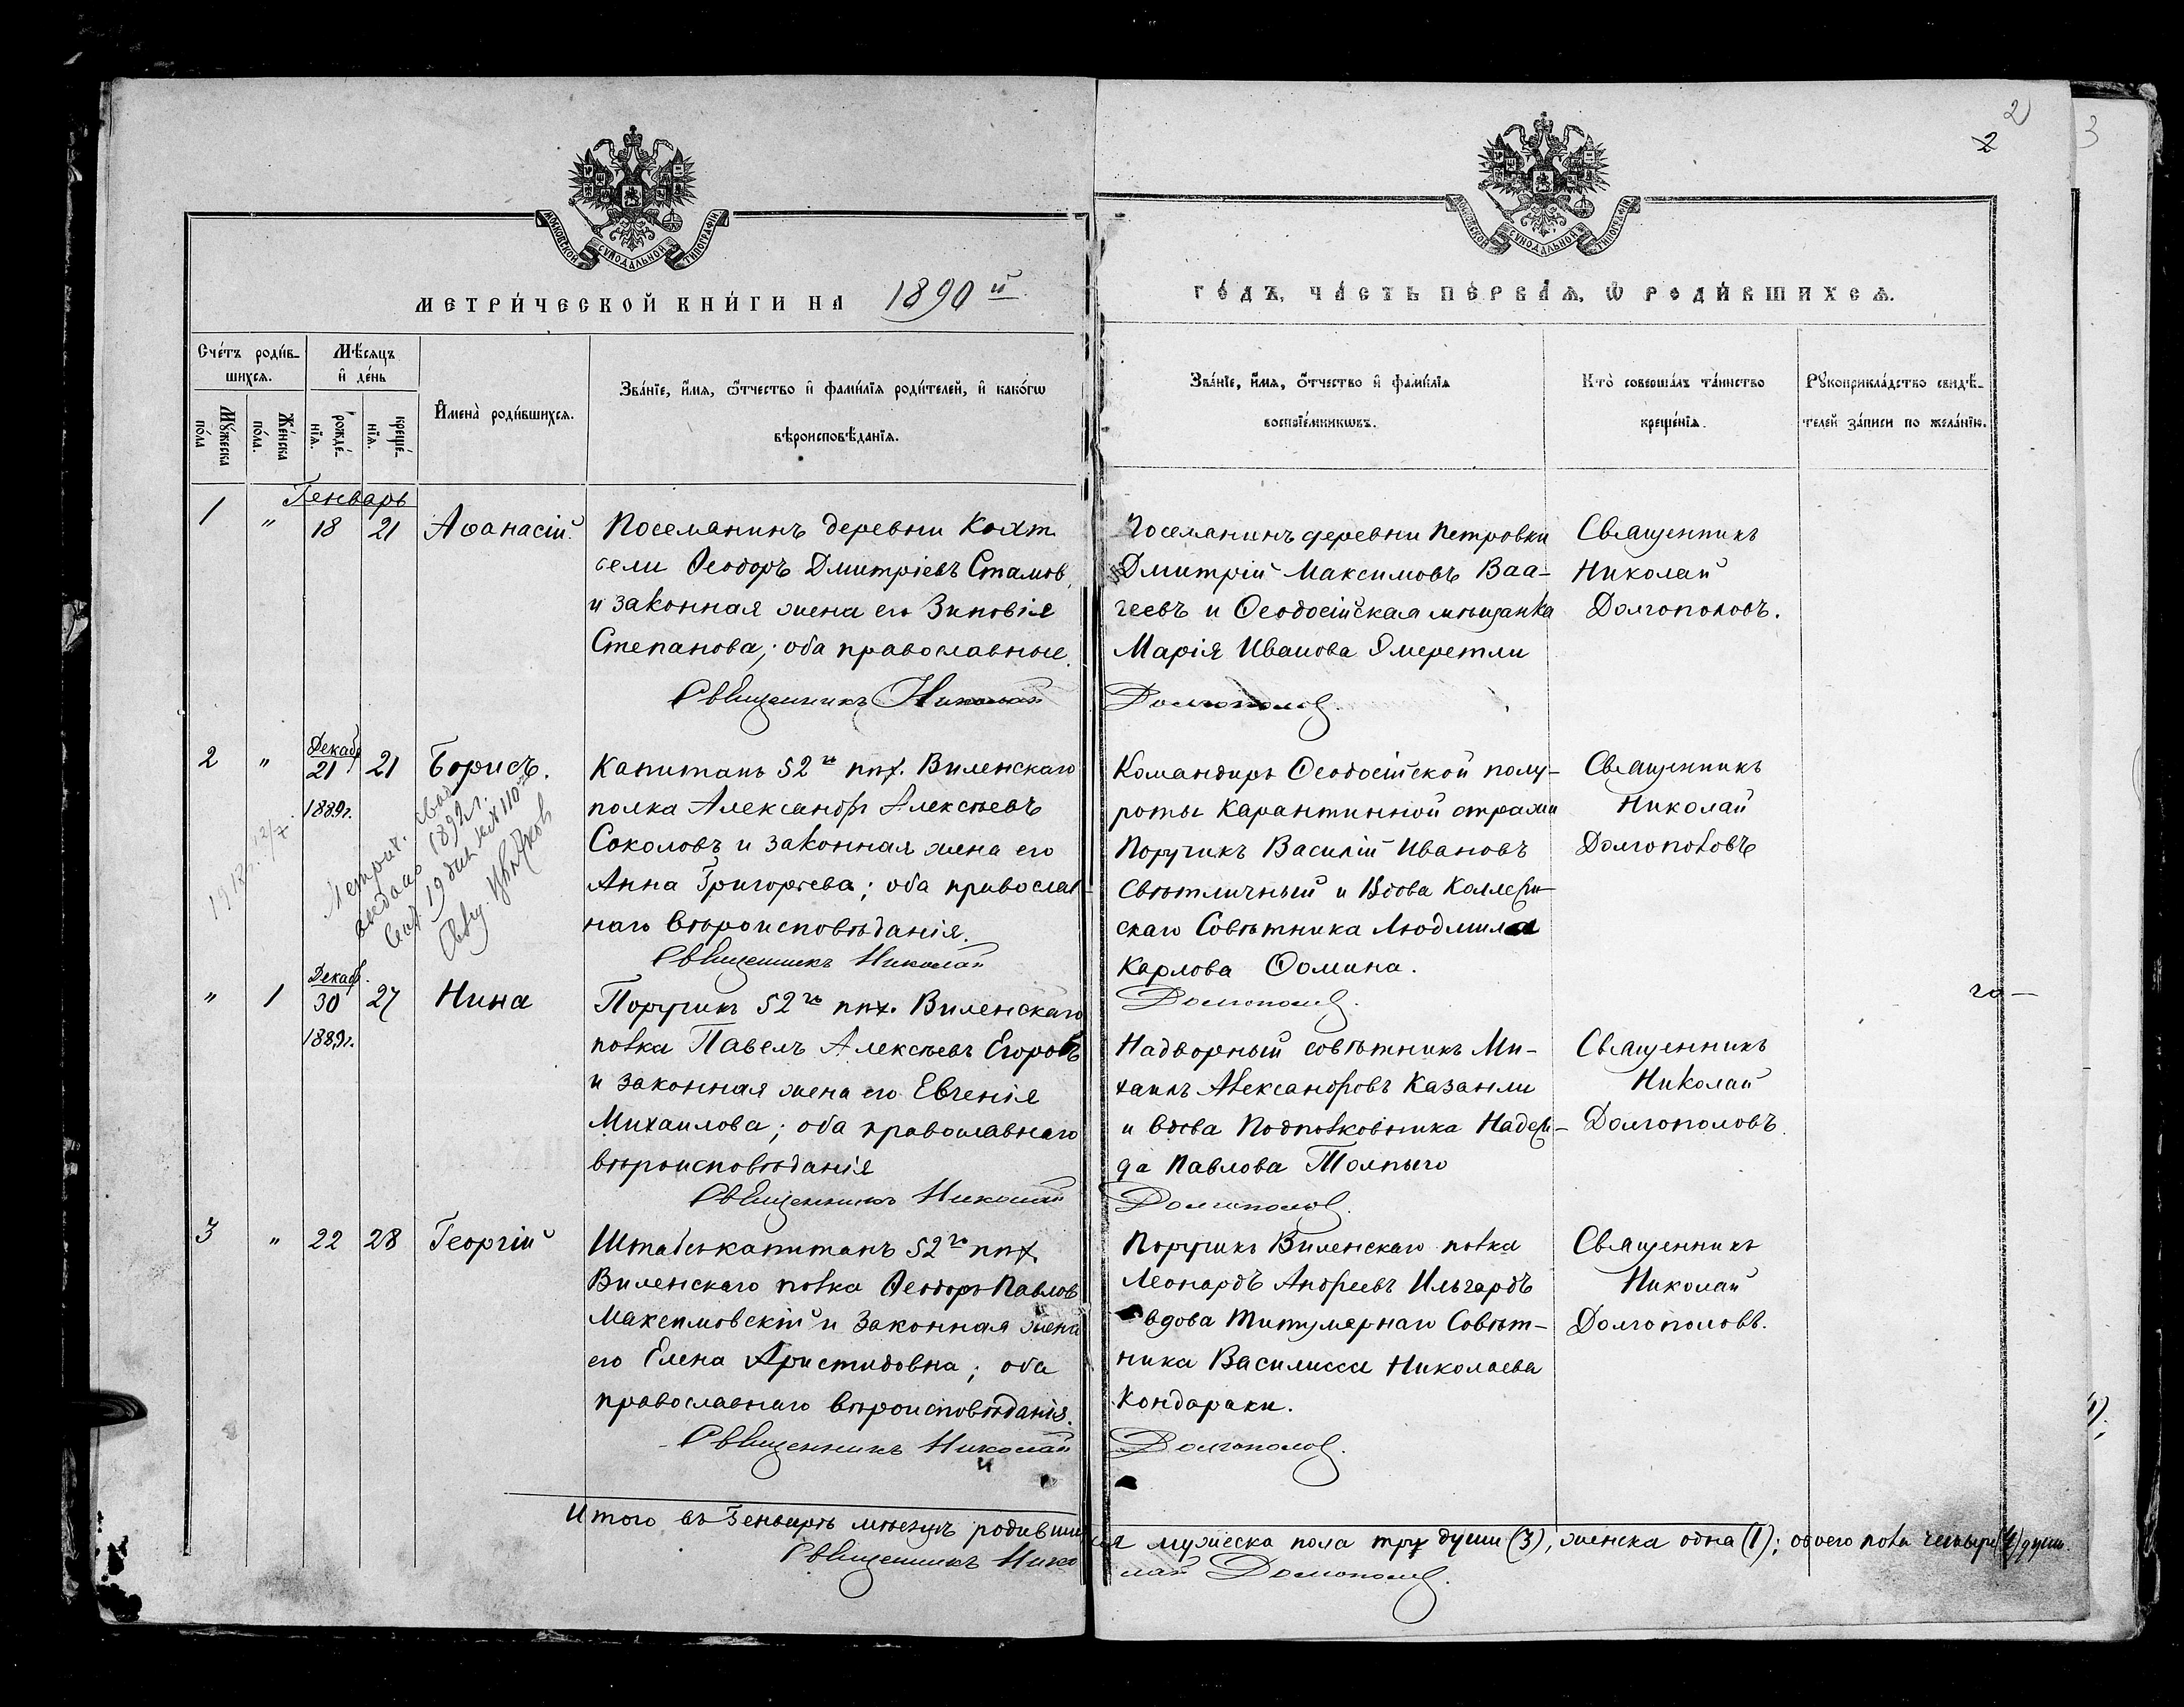 2
2
3
МОСКОВСКОЙ СѴНОДАЛЬНОЙ ТИПОГРАФІИ
МОСКОВСКОЙ СѴНОДАЛЬНОЙ ТИПОГРАФІИ
МЕТРИ́ЧЕСКОЙ КНИ́ГИ НА 1890 й
ГО́ДЪ, ЧА́СТЬ ПЕ́РВАѦ, Ѽ РОДИ́ВШИХСѦ.
Сче́тъ роди́в-
шихсѧ.
Мꙋ́жеска
по́ла
Же́нска
по́ла.
Мѣ́сѧцъ
и҆ де́нь
рожде́-
нїѧ.
креще́-
нїѧ.
И҆мена̀ роди́вшихсѧ.
Зва́нїе, и҆́мѧ, ѻ҆́тчество и҆ фамі́лїѧ роди́телей, и҆ како́гѡ
вѣроисповѣ́данїѧ.
Зва́нїе, и҆́мѧ, ѻ҆́тчество и҆ фамі́лїѧ
воспрїе́мникѡвъ.
Кто̀ соверша́лъ та́инство
креще́нїѧ.
Рꙋкоприкла́дство свидѣ́-
телей за́писи по жела́нїю.
Генварь
1 " 18 21 Аѳанасій.
Поселянинъ деревни Коят
сели Ѳеодоръ Дмитріевъ Стамов
и законная жена его Зиновія
Степанова; оба православные.
Священникъ Николай
Поселянинъ деревни Петровки
Дмитрій Максимовъ Ваа-
геевъ и Ѳеодосійская мѣщанка
Марія Иванова Эмеретли
Долгополов.
Священникъ
Николай
Долгополовъ.
2 " Декабр 21 21 Борисъ.
1889г.
Метрич. свид
выдано 1892 г.
19 110
Свящ.
Капитанъ 52го пѣх. Виленскаго
полка Александръ Алексѣевъ
Соколовъ и законная жена его
Анна Григорьева; оба православ-
наго вѣроисповѣданія.
Священникъ Николай
Командиръ Ѳеодосійской полу-
роты Карантинной стражи
Поручикъ Василій Ивановъ
Свѣтличный и Вдова Коллеж-
скаго Совѣтника Людмила
Карлова Ѳомина.
Долгополов.
Священникъ
Николай
Долгополовъ
" 1 Декаб. 30 27 Нина
1889г.
Поручикъ 52го пѣх. Виленскаго
полка Павелъ Алексѣевъ Егоровъ
и законная жена его Евгенія
Михаилова; оба православнаго
вѣроисповѣданія
Священникъ Николай
Надворный совѣтникъ Ми-
хаилъ Александровъ Казанли
и вдова Подполковника Надеж-
да Павлова Толпыго
Долгополов.
Священникъ
Николай
Долгополовъ.
го —
3 " 22 28 Георгій
Штабскапитанъ 52го пѣх.
Виленскаго полка Ѳеодоръ Павлов
Максимовскій и законная жена
его Елена Аристидовна; оба
православнаго вѣроисповѣданія.
Священникъ Николай
Поручикъ Виленскаго полка
Леонардъ Андреевъ Ильгардъ
вдова Титулярнаго Совѣт-
ника Василисса Николаева
Кондараки.
Долгополов.
Священникъ
Николай
Долгополовъ.
Итого въ Генварѣ мѣсяцѣ родившихся мужеска пола три души (3), женска одна (1); обоего пола четыре (4) души.
Священникъ Николай Долгополов.